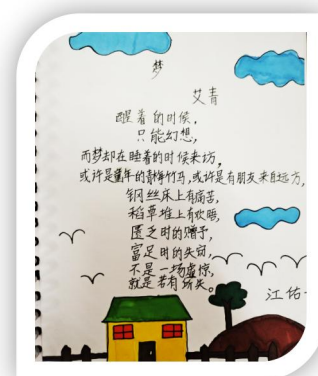 梦
艾青
醒着的时候,
只能幻想,
而梦却在睡着的时候来访,
或许是童年的青梅竹马,或许是有朋友来自远方,
钢丝床上有痛苦,
稻草堆上有欢晤,
匮乏时的赠予,
富足时的失窃,
不是一场虚惊,
就是若有所失。
江佑